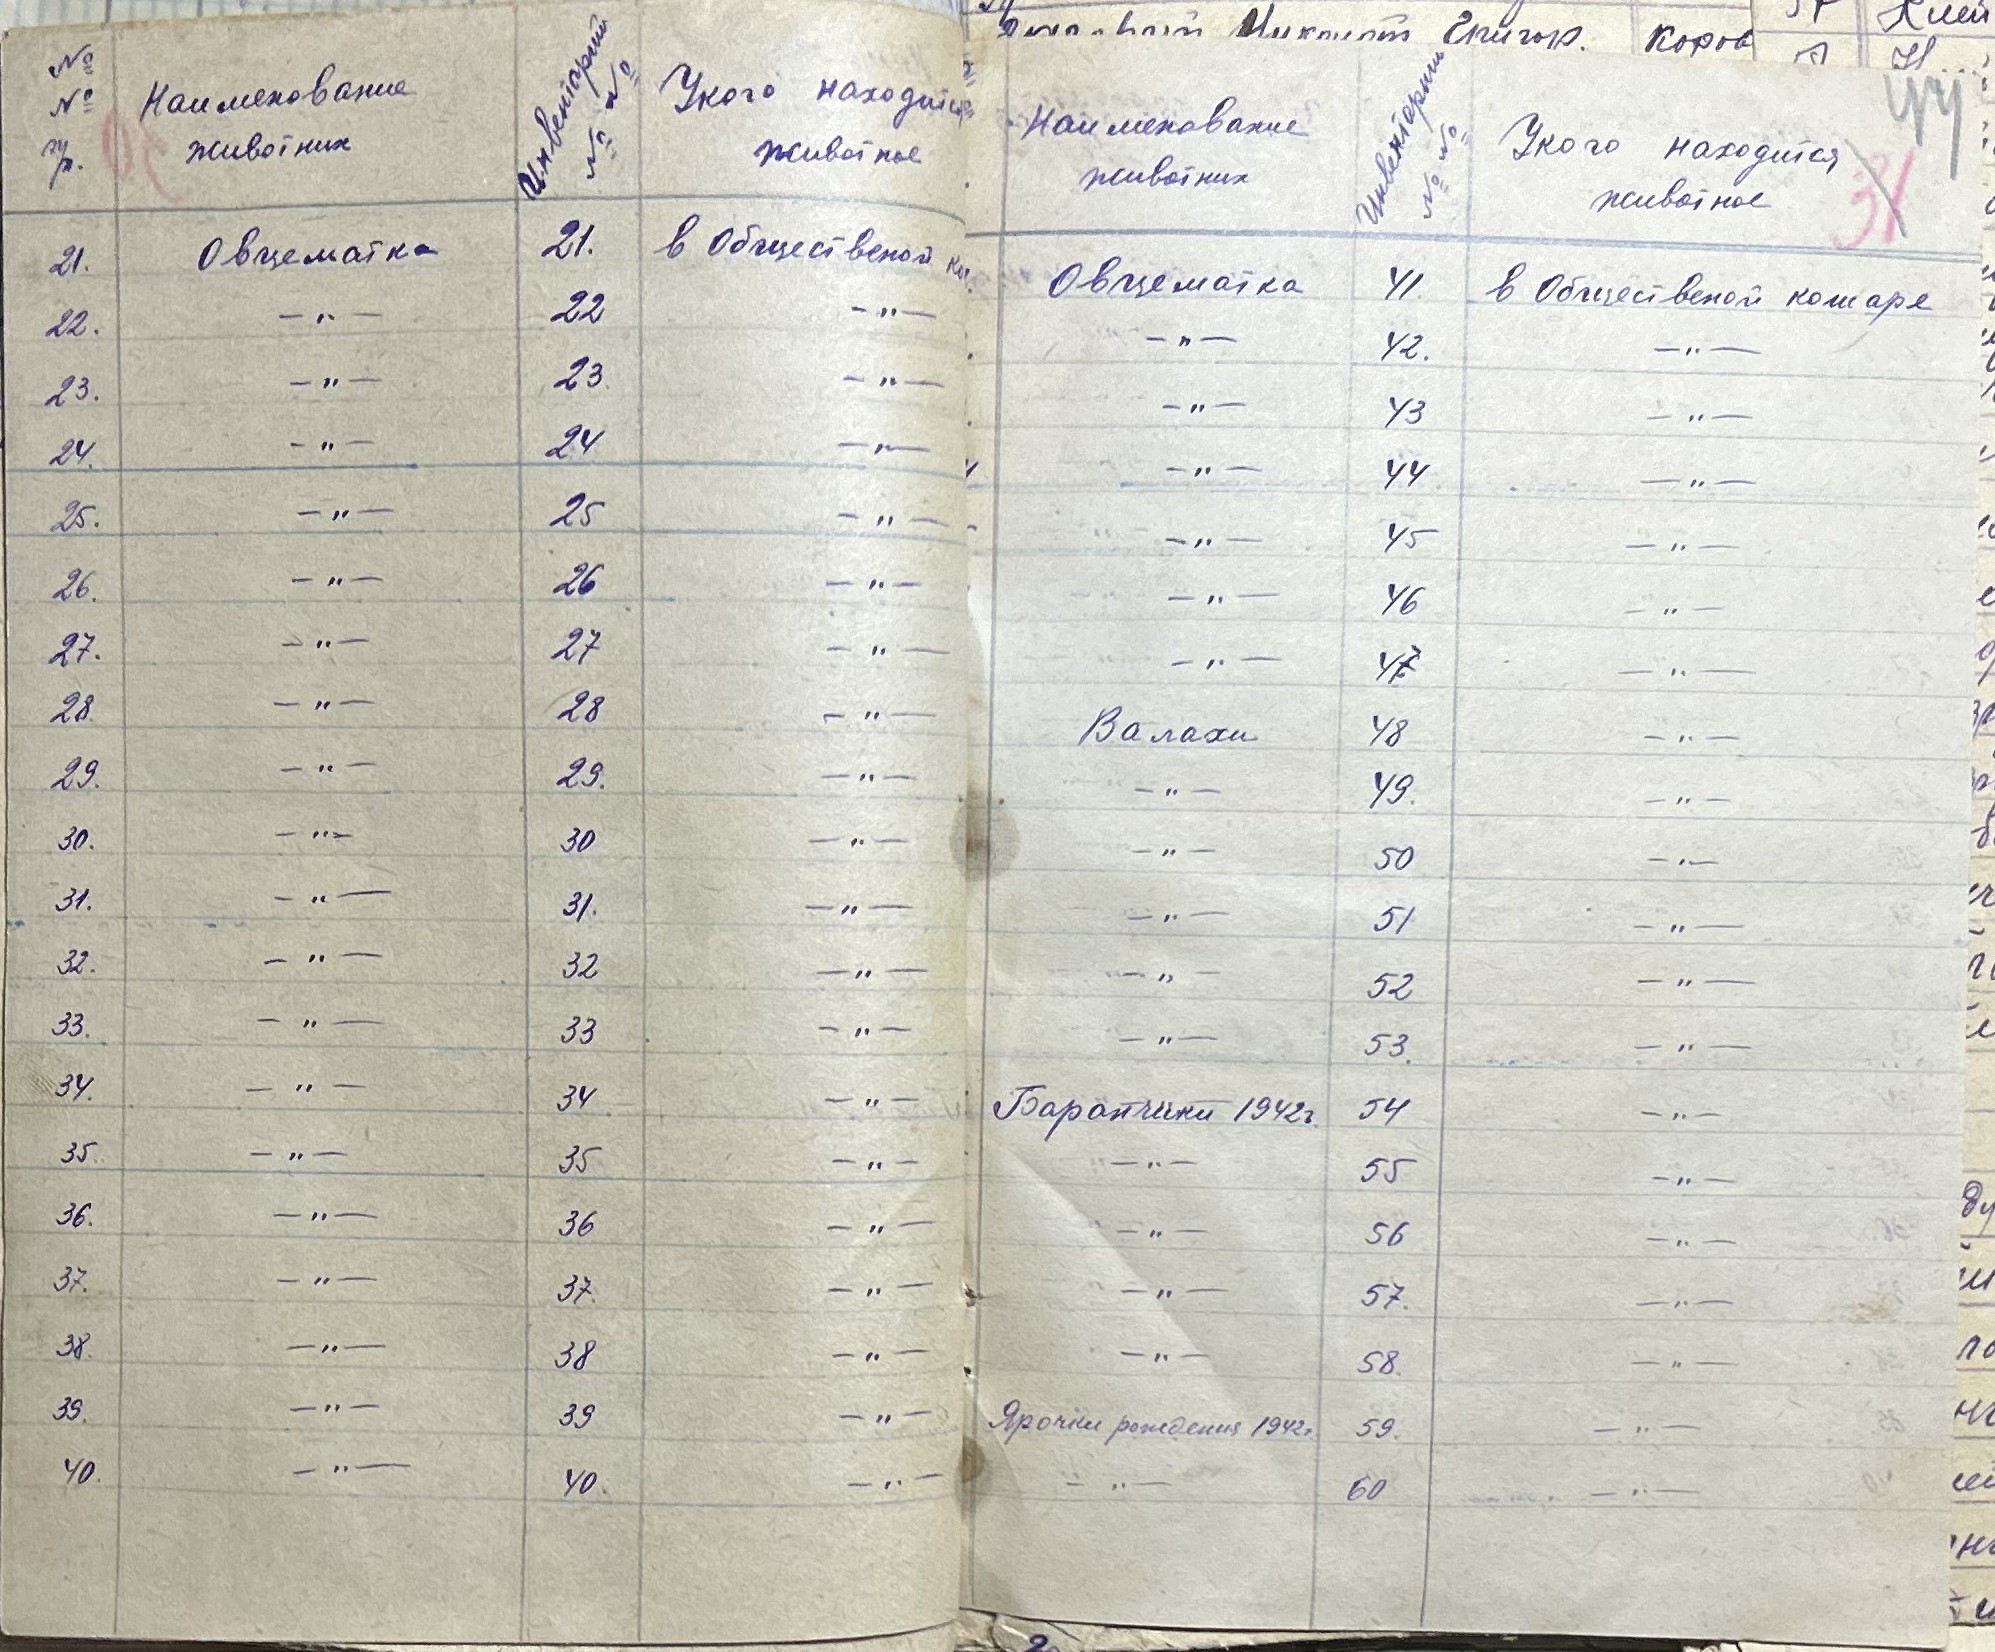 № № пр. Наименование животних Инвентарний № № Укого находится животное
21. Овцематка 21. в Общественой
22. —"— 22 —"—
23. —"— 23. —"—
24. —"— 24 —"—
25. —"— 25 —"—
26. —"— 26 —"—
27. —"— 27 —"—
28 —"— 28 —"—
29. —"— 29. —"—
30. —"— 30 —"—
31. —"— 31. —"—
32. —"— 32 —"—
33. —"— 33 —"—
34. —"— 34 —"—
35. —"— 35 —"—
36. —"— 36 —"—
37. —"— 37. —"—
38. —"— 38 —"—
39. —"— 39 —"—
40. —"— 40. —"—
Григор. Коров
Наименование животних Инвентарний № № Укого находится животное
31
44
Овцематка 41. в Общественой кошаре
—"— 42. —"—
—"— 43 —"—
—"— 44 —"—
—"— 45 —"—
—"— 46 —"—
—"— 47 —"—
Валахи 48 —"—
—"— 49. —"—
—"— 50 —"—
—"— 51 —"—
—"— 52 —"—
—"— 53. —"—
Баранчики 1942г. 54 —"—
—"— 55 —"—
—"— 56 —"—
—"— 57. —"—
—"— 58. —"—
Ярочки рождения 1942г. 59. —"—
—"— 60 —"—